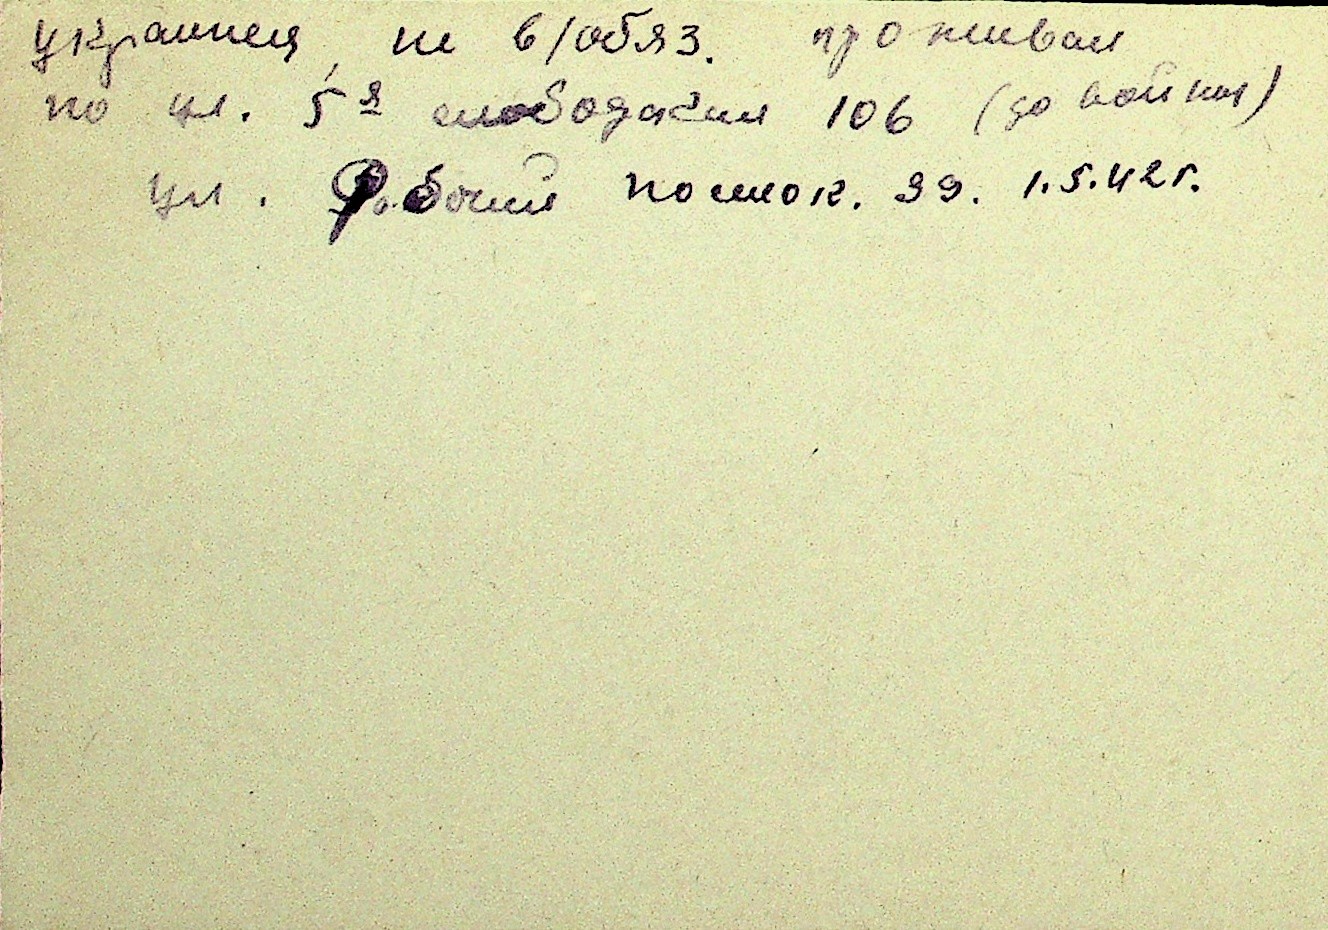 украинец, не в/обяз. проживал
по ул. 5я слободская 106 (до войны)
ул. Рабочий поселок. 99. 1.5.42г.